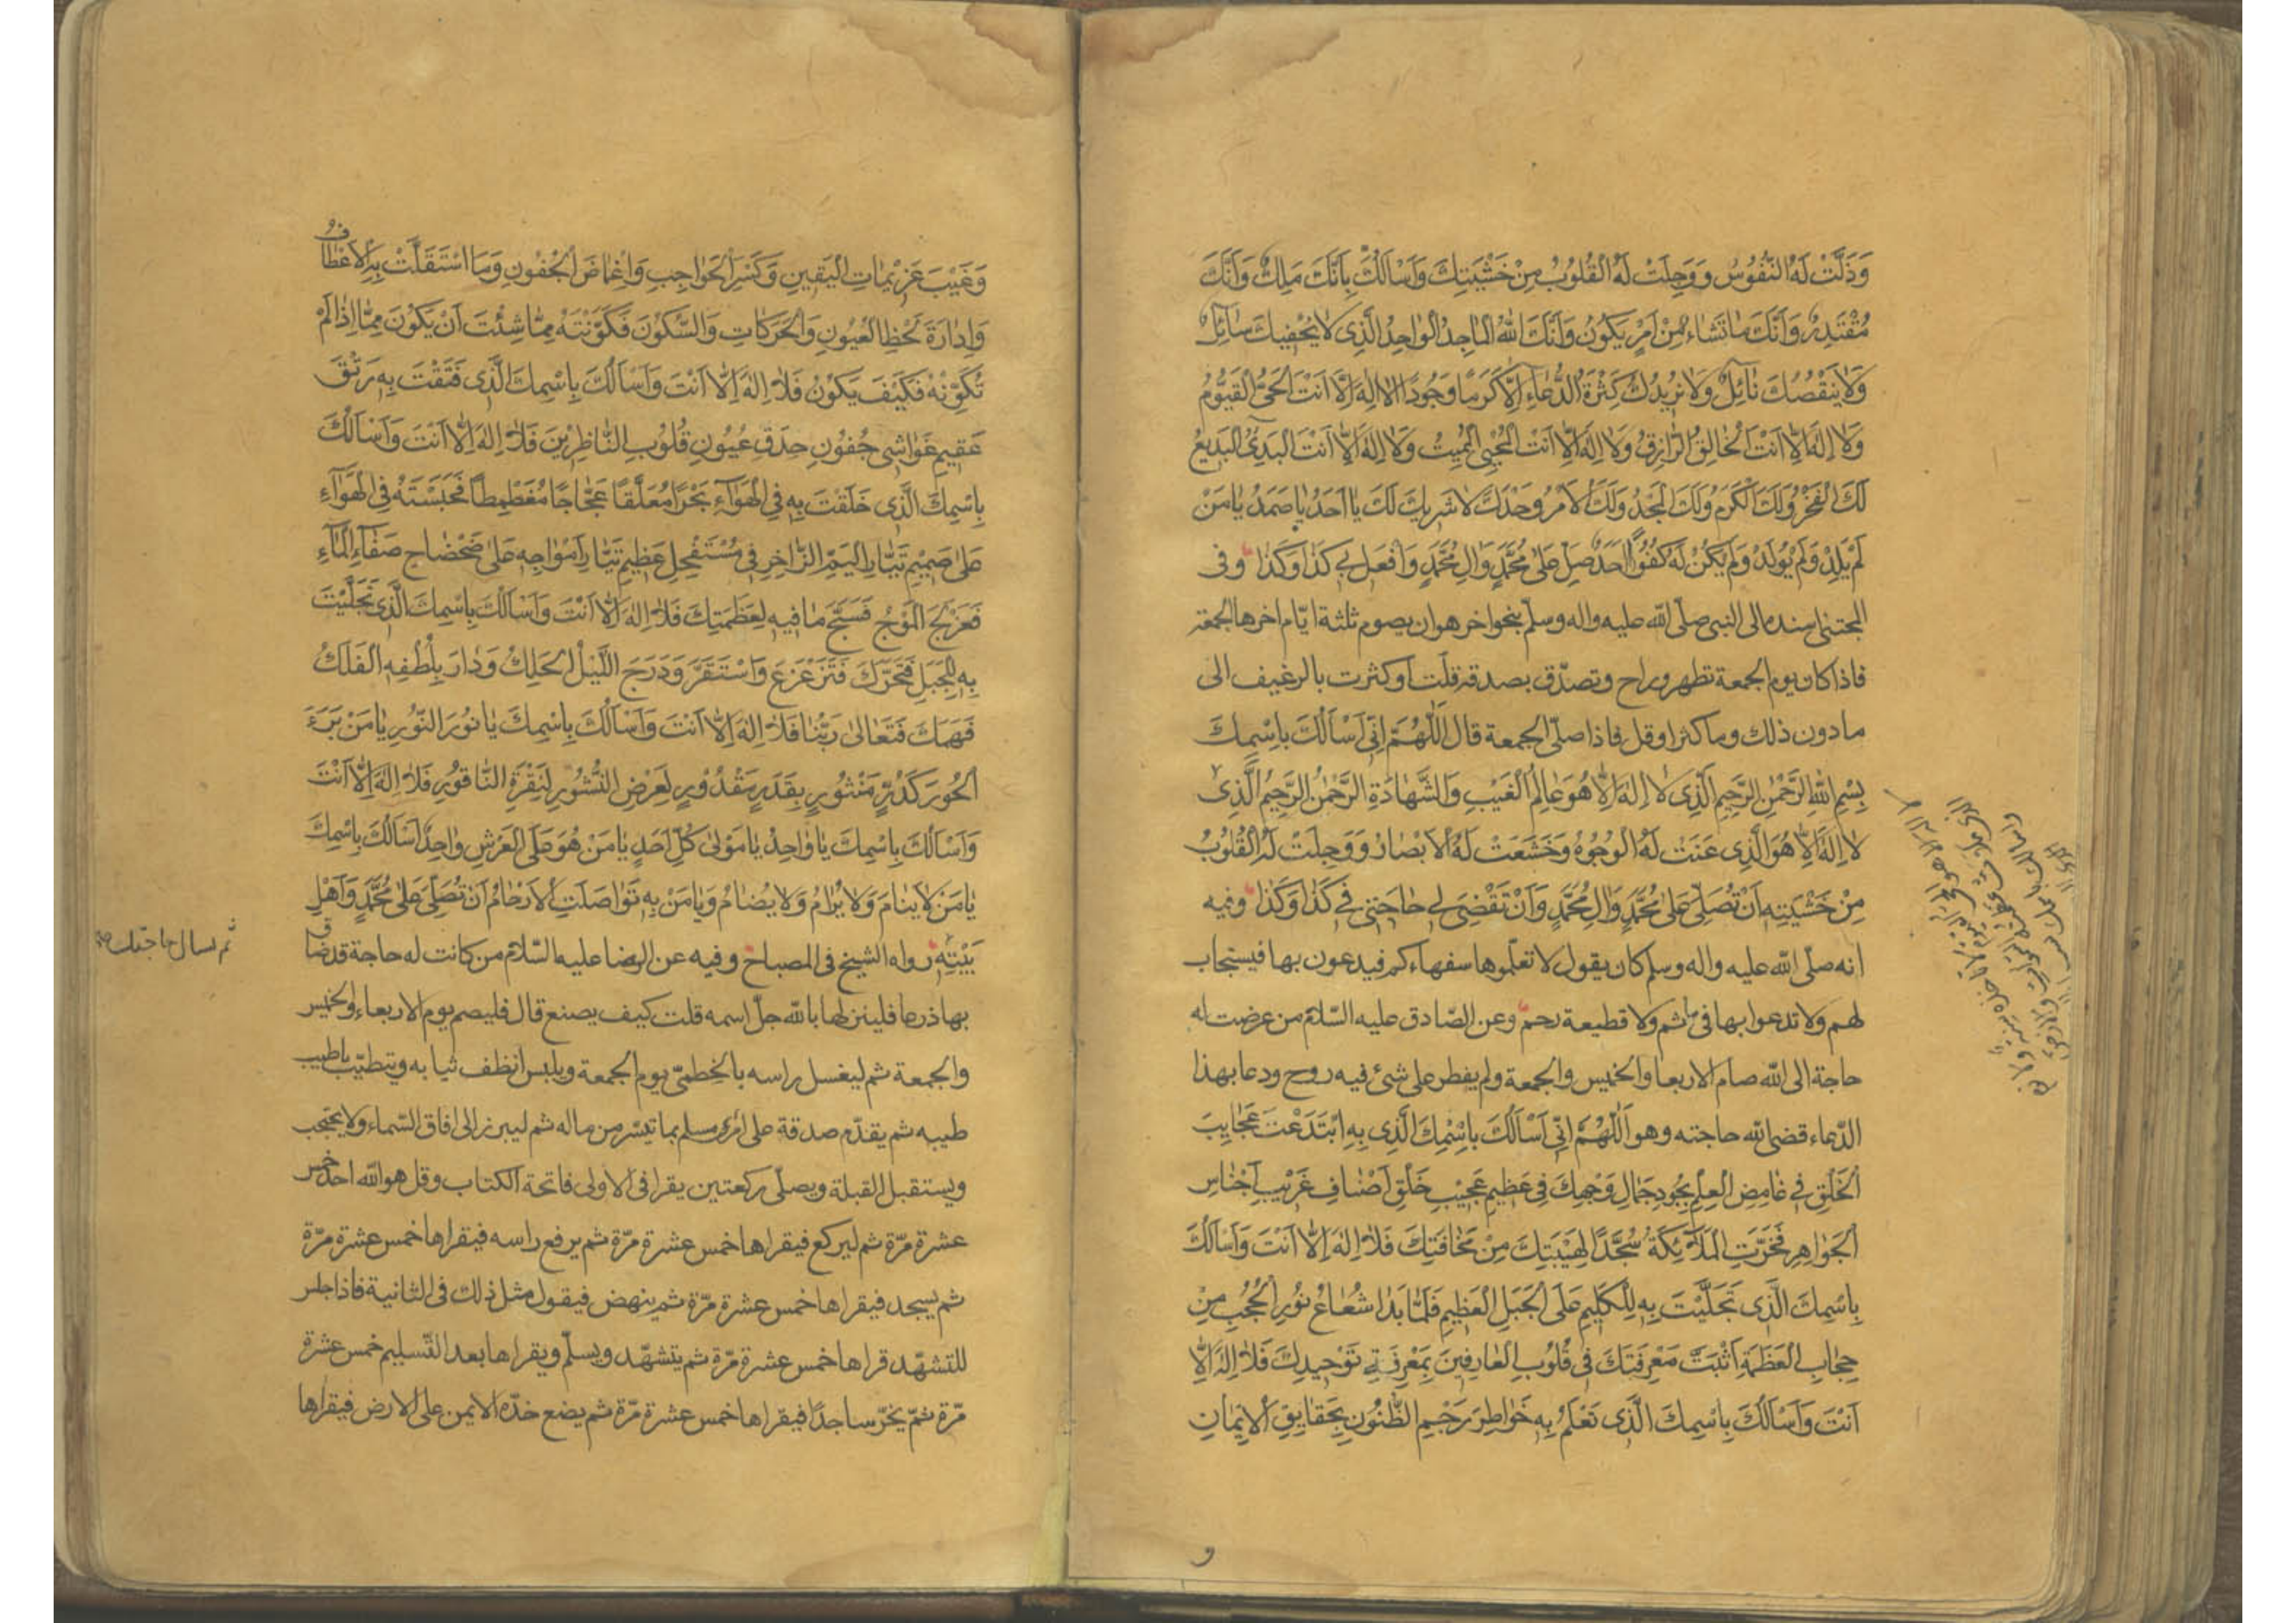 وَذَلَّتْ لَهُ النُّفُوسُ وَوَجِلَتْ لَهُ الْقُلُوبُ مِنْ خَشْيَتِكَ وَاَسْاَلُكَ بِاَنَّكَ مَلِكٌ وَاَنَّكَ
مُقْتَدِرٌ وَاَنَّكَ مَا تَشَاءُ مِنْ اَمْرٍ يَكُونُ وَاَنَّكَ اللهُ الْمَاجِدُ الْوَاحِدُ الَّذِى لَا يُحْفِيكَ سَائِلٌ
وَلَا يَنْقُصُكَ نَائِلٌ وَلَا يَزِيدُكَ كَثْرَةُ الدُّعَاءِ اِلَّا كَرَمًا وَجُودًا لَا اِلٰهَ اِلَّا اَنْتَ الْحَىُّ الْقَيُّومُ
وَلَا اِلٰهَ اِلَّا اَنْتَ الْخَالِقُ الرَّازِقُ وَلَا اِلٰهَ اِلَّا اَنْتَ الْمُحْيِى الْمُمِيتُ وَلَا اِلٰهَ اِلَّا اَنْتَ الْبَدِئُ الْبَدِيعُ
لَكَ الْفَخْرُ وَلَكَ الْكَرَمُ وَلَكَ الْمَجْدُ وَلَكَ الْاَمْرُ وَحْدَكَ لَا شَرِيكَ لَكَ يَا اَحَدُ يَا صَمَدُ يَا مَنْ
لَمْ يَلِدْ وَلَمْ يُولَدْ وَلَمْ يَكُنْ لَهُ كُفُوًا اَحَدٌ صَلِّ عَلٰى مُحَمَّدٍ وَآلِ مُحَمَّدٍ وَافْعَلْ بِى كَذَا وَكَذَا وفى
المجتبى اسنده الى النبى صلّى الله عليه واله وسلّم بنحو اخر هو ان يصوم ثلثة ايّام اخرها الجمعة
فاذا كان يوم الجمعة تطهر وراح وتصدّق بصدقة قلّت او كثرت بالرغيف الى
ما دون ذلك وما كثر او قل فاذا صلّى الجمعة قال اَللّٰهُمَّ اِنِّى اَسْاَلُكَ بِاسْمِكَ
بِسْمِ اللهِ الرَّحْمٰنِ الرَّحِيمِ الَّذِى لَا اِلٰهَ اِلَّا هُوَ عَالِمُ الْغَيْبِ وَالشَّهَادَةِ الرَّحْمٰنُ الرَّحِيمُ الَّذِى
لَا اِلٰهَ اِلَّا هُوَ الَّذِى عَنَتْ لَهُ الْوُجُوهُ وَخَشَعَتْ لَهُ الْاَبْصَارُ وَوَجِلَتْ لَهُ الْقُلُوبُ
مِنْ خَشْيَتِهِ اَنْ تُصَلِّىَ عَلٰى مُحَمَّدٍ وَآلِ مُحَمَّدٍ وَاَنْ تَقْضِىَ لِى حَاجَتِى فِى كَذَا وَكَذَا وفيه
انه صلّى الله عليه واله وسلم كان يقول لا تعلّموها سفهاءكم فيدعون بها فيستجاب
لهم ولا تدعوا بها فى ماثم ولا قطيعة رحم وعن الصّادق عليه السّلام من عرضت له
حاجة الى الله صام الاربعا والخميس والجمعة ولم يفطر على شىء فيه روح ودعا بهذا
الدّعاء قضى الله حاجته وهو اَللّٰهُمَّ اِنِّى اَسْاَلُكَ بِاسْمِكَ الَّذِى بِهِ ابْتَدَعْتَ عَجَايِبَ
الْخَلْقِ فِى غَامِضِ الْعِلْمِ بِجُودِ جَمَالِ وَجْهِكَ فِى عَظِيمِ عَجِيبِ خَلْقِ اَصْنَافِ غَرِيبِ اَجْنَاسِ
الْجَوَاهِرِ فَخَرَّتِ الْمَلَآئِكَةُ سُجَّدًا لِهَيْبَتِكَ مِنْ مَخَافَتِكَ فَلَا اِلٰهَ اِلَّا اَنْتَ وَاَسْاَلُكَ
بِاسْمِكَ الَّذِى تَجَلَّيْتَ بِهِ لِلْكَلِيمِ عَلَى الْجَبَلِ الْعَظِيمِ فَلَمَّا بَدَا شُعَاعُ نُورِ الْحُجُبِ مِنْ
حِجَابِ الْعَظَمَةِ اَثْبَتَّ مَعْرِفَتَكَ فِى قُلُوبِ الْعَارِفِينَ بِمَعْرِفَةِ تَوْحِيدِكَ فَلَا اِلٰهَ اِلَّا
اَنْتَ وَاَسْاَلُكَ بِاسْمِكَ الَّذِى تَعْلَمُ بِهِ خَوَاطِرَ رَجْمِ الظُّنُونِ بِحَقَايِقِ الْاِيمَانِ
وَغَيْبَ عَزِيمَاتِ الْيَقِينِ وَكَسْرَ الْحَوَاجِبِ وَاِغْمَاضَ الْجُفُونِ وَمَا اسْتَقَلَّتْ بِهِ الْاَعْطَافُ
وَاِدَارَةَ لَحْظِ الْعُيُونِ وَالْحَرَكَاتِ وَالسُّكُونَ فَكَوَّنْتَهُ مِمَّا شِئْتَ اَنْ يَكُونَ مِمَّا اِذَا لَمْ
تُكَوِّنْهُ فَكَيْفَ يَكُونُ فَلَا اِلٰهَ اِلَّا اَنْتَ وَاَسْاَلُكَ بِاسْمِكَ الَّذِى فَتَقْتَ بِهِ رَتْقَ
عَقِيمِ غَوَاشِى جُفُونِ حِدَقِ عُيُونِ قُلُوبِ النَّاظِرِينَ فَلَا اِلٰهَ اِلَّا اَنْتَ وَاَسْاَلُكَ
بِاسْمِكَ الَّذِى خَلَقْتَ بِهِ فِى الْهَوَآءِ بَحْرًا مُعَلَّقًا عَجَّاجًا مُغَطْمِطًا فَحَبَسْتَهُ فِى الْهَوَآءِ
عَلٰى صَمِيمِ تَيَّارِ الْيَمِّ الزَّاخِرِ فِى مُسْتَفْحِلِ عَظِيمِ تَيَّارِ اَمْوَاجِهِ عَلٰى ضَحْضَاحِ صَفَآءِ الْمَآءِ
فَعَزْلَجَ الْمَوْجُ فَسَبَّحَ مَا فِيهِ لِعَظَمَتِكَ فَلَا اِلٰهَ اِلَّا اَنْتَ وَاَسْاَلُكَ بِاسْمِكَ الَّذِى تَجَلَّيْتَ
بِهِ لِلْجَبَلِ فَتَحَرَّكَ فَتَزَعْزَعَ وَاسْتَقَرَّ وَدَرَجَ اللَّيْلُ الْحَلِكُ وَدَارَ بِلُطْفِهِ الْفَلَكُ
فَهَمَكَ فَتَعَالٰى رَبُّنَا فَلَا اِلٰهَ اِلَّا اَنْتَ وَاَسْاَلُكَ بِاسْمِكَ يَا نُورَ النُّورِ يَا مَنْ بَرَءَ
الْحُورَ كَدُرٍّ مَنْثُورٍ بِقَدَرٍ مَقْدُورٍ لِعَرْضِ النُّشُورِ لِنَقْرَةِ النَّاقُورِ فَلَا اِلٰهَ اِلَّا اَنْتَ
وَاَسْاَلُكَ بِاسْمِكَ يَا وَاحِدُ يَا مَوْلٰى كُلِّ اَحَدٍ يَا مَنْ هُوَ عَلَى الْعَرْشِ وَاحِدٌ اَسْاَلُكَ بِاسْمِكَ
يَا مَنْ لَا يَنَامُ وَلَا يُرَامُ وَلَا يُضَامُ وَيَا مَنْ بِهِ تَوَاصَلَتِ الْاَرْحَامُ اَنْ تُصَلِّىَ عَلٰى مُحَمَّدٍ وَاَهْلِ
بَيْتِهِ رواه الشيخ فى المصباح وفيه عن الرضا عليه السّلام من كانت له حاجة قد ضاق
ثم تسال حاجتك
بها ذرعا فلينزلها بالله جلّ اسمه قلت كيف يصنع قال فليصم يوم الاربعاء والخميس
والجمعة ثم ليغسل راسه بالخطمىّ يوم الجمعة ويلبس انظف ثيابه ويتطيّب باطيب
طيبه ثم يقدّم صدقة على امرئ مسلم بما تيسّر من ماله ثم ليبرز الى افاق السّماء ولا يحتجب
ويستقبل القبلة ويصلّى ركعتين يقرا فى الاولى فاتحة الكتاب وقل هو الله احد خمس
عشرة مرّة ثم ليركع فيقراها خمس عشرة مرّة ثم يرفع راسه فيقراها خمس عشرة مرّة
ثم يسجد فيقراها خمس عشرة مرّة ثم ينهض فيقول مثل ذلك فى الثانية فاذا جلس
للتشهّد قراها خمس عشرة مرّة ثم يتشهّد ويسلّم ويقراها بعد التّسليم خمس عشرة
مرّة ثمّ يخرّ ساجدًا فيقراها خمس عشرة مرّة ثم يضع خدّه الايمن على الارض فيقراها